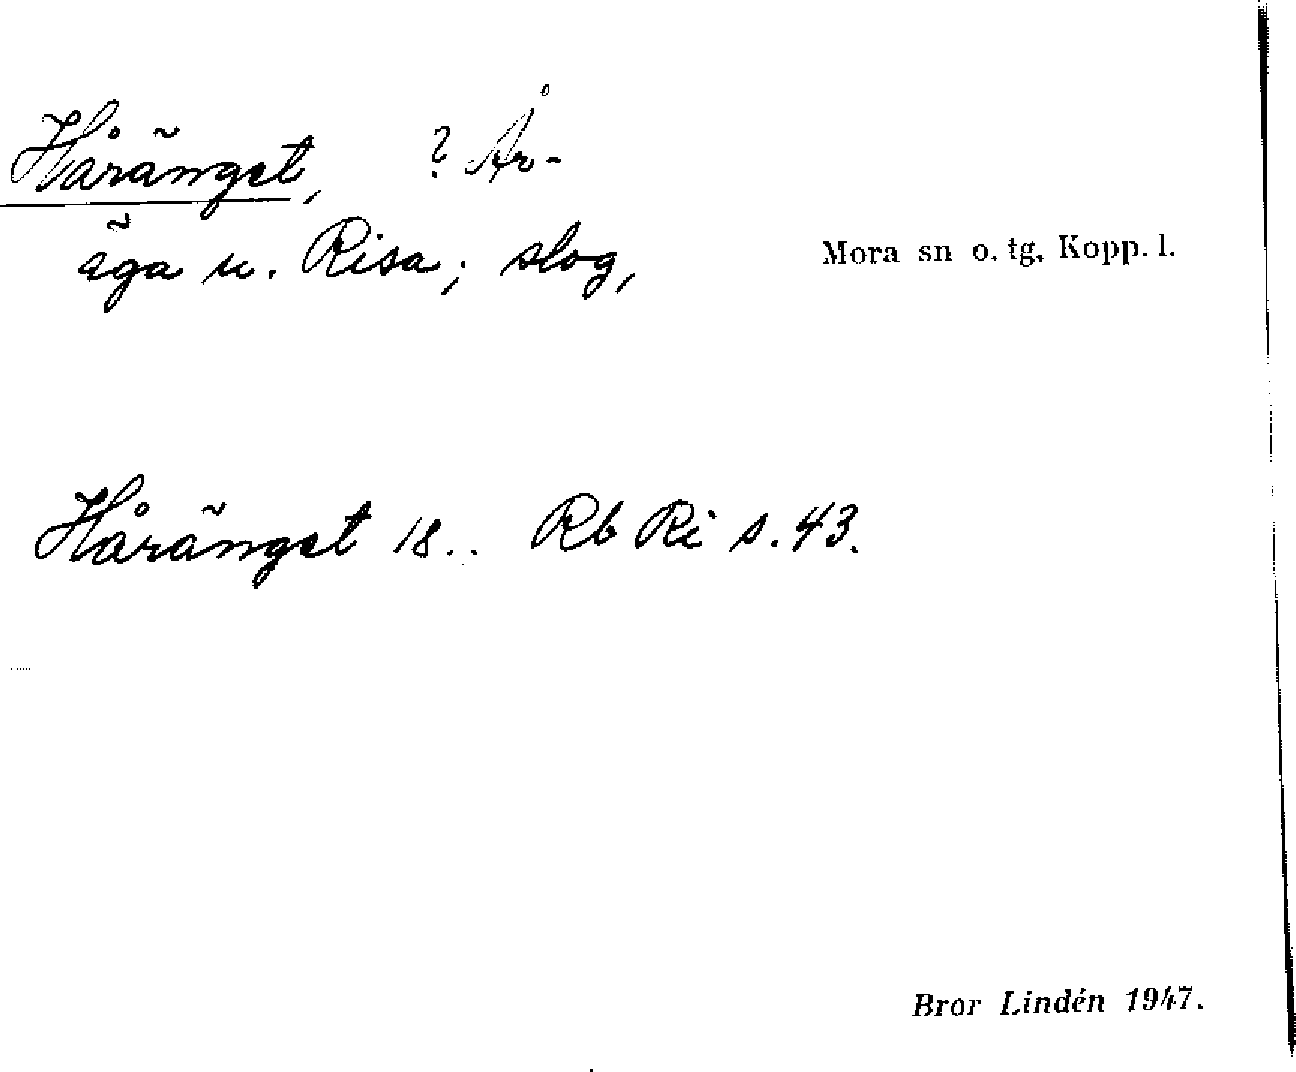 Håränget, ? År-
äga u. Risa; slog,
Mora sn o. tg. Kopp. l.
Håränget 18.. Rb Ri s. 43.
Bror Lindén 1947.